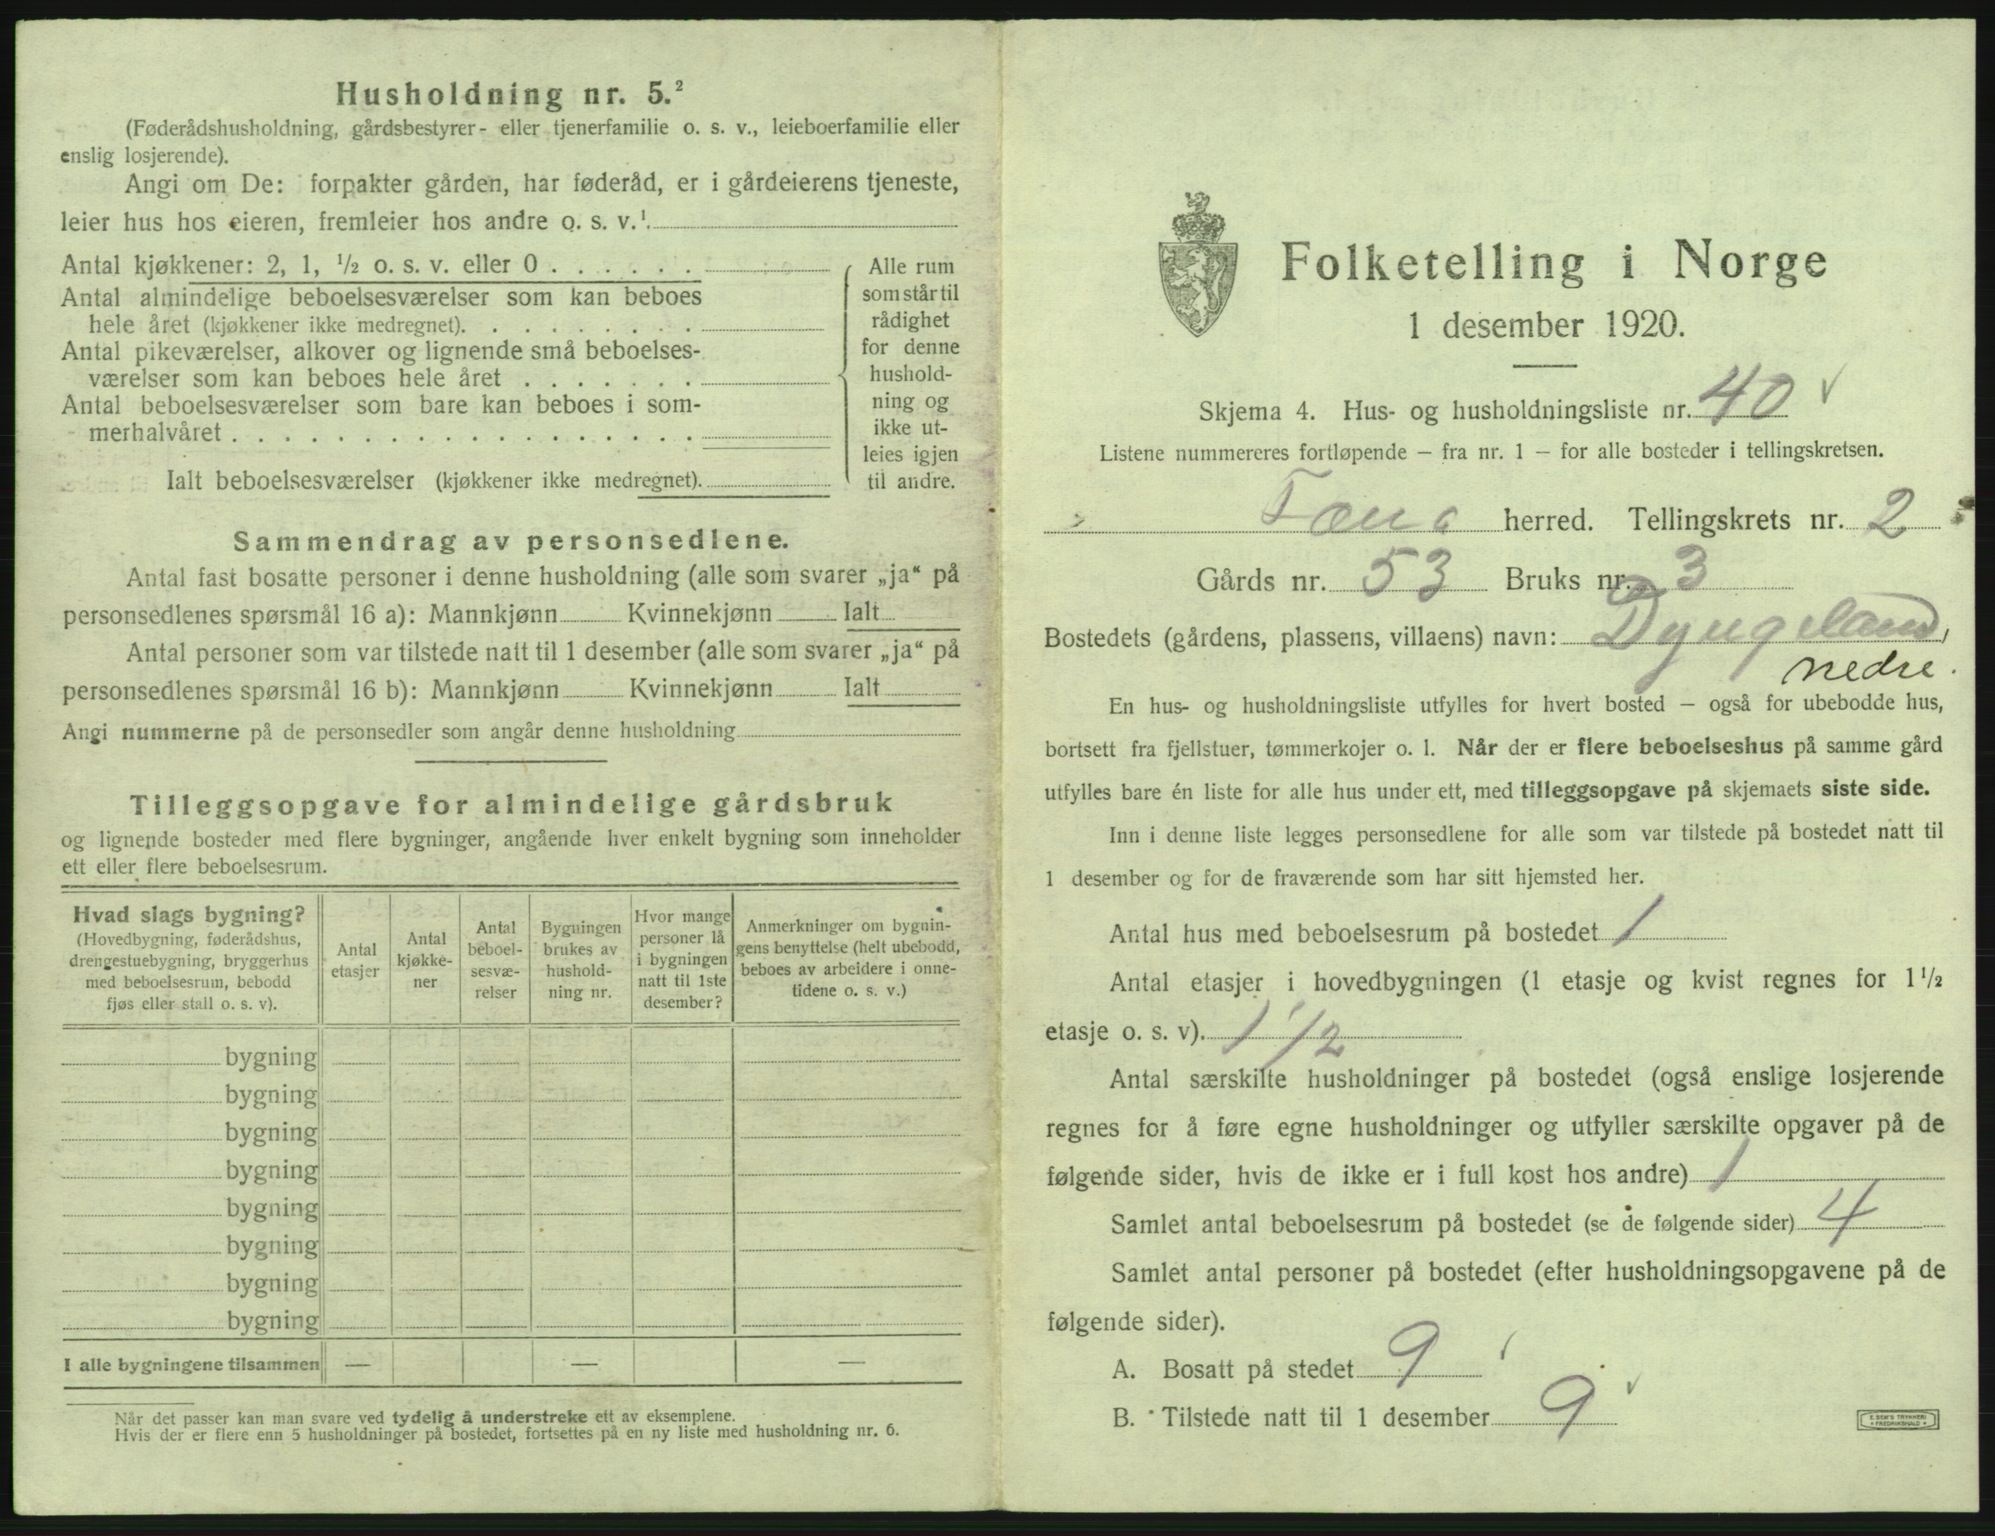 Husholdning nr. 5.²
(Føderådshusholdning, gårdsbestyrer- eller tjenerfamilie o. s. v., leieboerfamilie eller
enslig losjerende).
Angi om De: forpakter gården, har føderåd, er i gårdeierens tjeneste,
leier hus hos eieren, fremleier hos andre o. s. v.¹.
Antal kjøkkener: 2, 1, ½ o. s. v. eller 0 . . . . . .
Antal almindelige beboelsesværelser som kan beboes
hele året (kjøkkener ikke medregnet). . . . . . . . .
Antal pikeværelser, alkover og lignende små beboelses-
værelser som kan beboes hele året . . . . . . .
Antal beboelsesværelser som bare kan beboes i som-
merhalvåret . . . . . . . . . . . . . . . . . .
Alle rum
som står til
rådighet
for denne
hushold-
ning og
ikke ut-
leies igjen
til andre.
Ialt beboelsesværelser (kjøkkener ikke medregnet).
Sammendrag av personsedlene.
Antal fast bosatte personer i denne husholdning (alle som svarer „ja“ på
personsedlenes spørsmål 16 a): Mannkjønn Kvinnekjønn Ialt
Antal personer som var tilstede natt til 1 desember (alle som svarer „ja“ på
personsedlenes spørsmål 16 b): Mannkjønn Kvinnekjønn Ialt
Angi nummerne på de personsedler som angår denne husholdning
Tilleggsopgave for almindelige gårdsbruk
og lignende bosteder med flere bygninger, angående hver enkelt bygning som inneholder
ett eller flere beboelsesrum.
Hvad slags bygning?
(Hovedbygning, føderådshus,
drengestuebygning, bryggerhus
med beboelsesrum, bebodd
fjøs eller stall o. s. v).
Antal
etasjer
Antal
kjøkke-
ner
Antal
beboel-
sesvæ-
relser
Bygningen
brukes av
hushold-
ning nr.
Hvor mange
personer lå
i bygningen
natt til 1ste
desember?
Anmerkninger om bygnin-
gens benyttelse (helt ubebodd,
beboes av arbeidere i onne-
tidene o. s. v.)
bygning
bygning
bygning
bygning
bygning
bygning
bygning
bygning
I alle bygningene tilsammen — — —
Når det passer kan man svare ved tydelig å understreke ett av eksemplene.
Hvis der er flere enn 5 husholdninger på bostedet, fortsettes på en ny liste med husholdning nr. 6.
Folketelling i Norge
1 desember 1920.
Skjema 4. Hus- og husholdningsliste nr. 40 ✓
Listene nummereres fortløpende – fra nr. 1 – for alle bosteder i tellingskretsen.
Fana herred. Tellingskrets nr. 2
Gårds nr. 53 Bruks nr. 3
Bostedets (gårdens, plassens, villaens) navn: Dyngeland,
nedre.
En hus- og husholdningsliste utfylles for hvert bosted – også for ubebodde hus,
bortsett fra fjellstuer, tømmerkojer o. l. Når der er flere beboelseshus på samme gård
utfylles bare én liste for alle hus under ett, med tilleggsopgave på skjemaets siste side.
Inn i denne liste legges personsedlene for alle som var tilstede på bostedet natt til
1 desember og for de fraværende som har sitt hjemsted her.
Antal hus med beboelsesrum på bostedet 1
Antal etasjer i hovedbygningen (1 etasje og kvist regnes for 1½
etasje o. s. v). 1 1/2
Antal særskilte husholdninger på bostedet (også enslige losjerende
regnes for å føre egne husholdninger og utfyller særskilte opgaver på de
følgende sider, hvis de ikke er i full kost hos andre) 1
Samlet antal beboelsesrum på bostedet (se de følgende sider) 4
Samlet antal personer på bostedet (efter husholdningsopgavene på de
følgende sider).
A. Bosatt på stedet 9
B. Tilstede natt til 1 desember 9 ✓
E. SEM'S TRYKKERI
FREDRIKSHALD